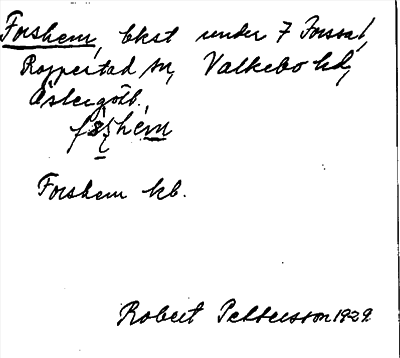 Forshem, bkst under 7 Forssa,
Rappestad sn, Valkebo hd,
Östergötl.
Forshem kb.
Robert Pettersson 1929